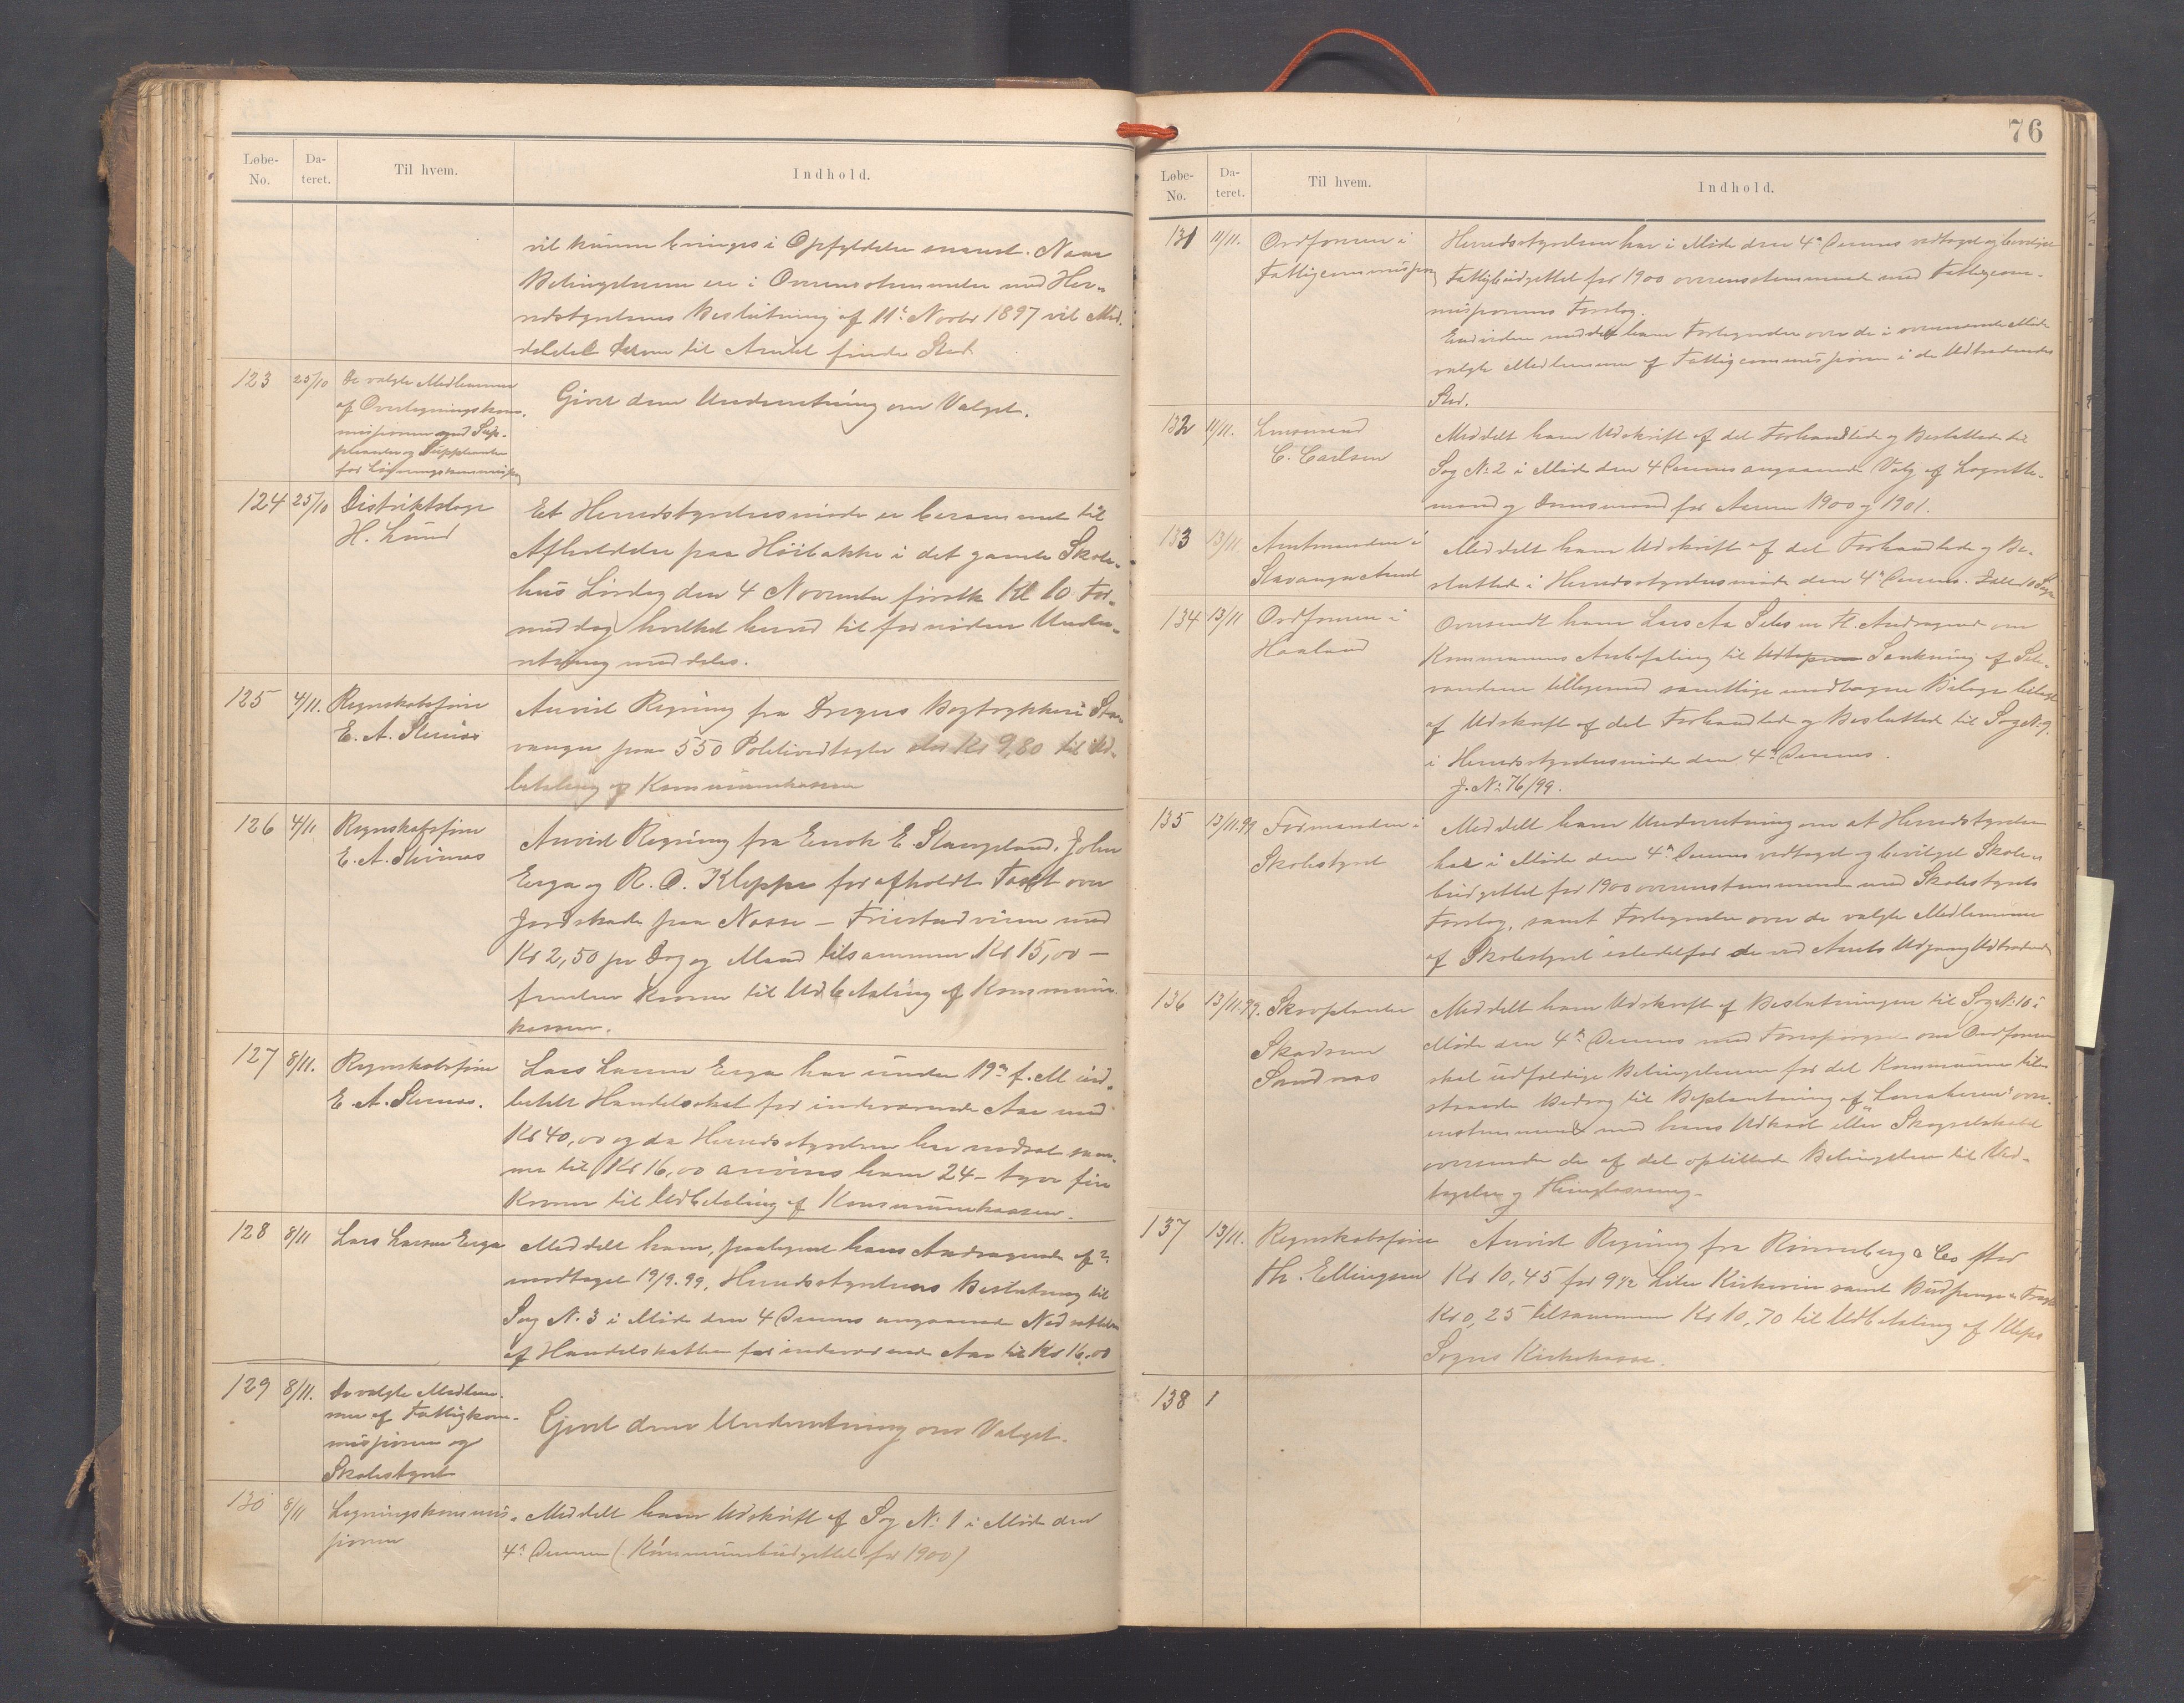 Løbe-No. Da-teret. Til hvem. Indhold.
vil kunne bringes i Opfyldelse snarest. Naar
Betingelserne er i Overensstemmelse med Her-
redsstyrelsens Beslutning af 11te Novbr 1897 vil Med-
delelse derom til Amtet finde Sted.
123 25/10 De valgte Medlemmer
af Overligningskom-
missionen med Sup-
pleanter og Suppleanter
for Ligningskommissionen
Givet dem Underretning om Valget.
124 25/10 Distriktslæge
H. Lund
Et Herredsstyrelsesmøde er berammet til
Afholdelse paa Høibakke i det gamle Skole-
hus Lördag den 4 November förstk. Kl 10 For-
middag hvilket herved til fornöden Under-
retning meddeles.
125 4/11. Regnskabsförer
E. A. Stennes
Anvist Regning fra Dreyers Bogtrykkeri Sta-
vanger paa 550 Politivedtægter stor Kr 9,80 til Ud-
betaling af Kommunekassen
126 4/11 Regnskabsförer
E. A. Stennes
Anvist Regning fra Enok E. Stangeland, John
Erga og R. O. Kleppe for afholdt Taxt over
Jordskade paa Nasse - Friestadveien med
Kr 2,50 pr Dag og Mand tilsammen Kr 15,00 -
femten Kroner til Udbetaling af Kommune-
kassen.
127 8/11. Regnskabsförer
E. A. Stennes.
Lars Larsen Erga har under 19de f. M ind-
betalt Handelsskat for indeværende Aar med
Kr 40,00 og da Herredsstyrelsen har nedsat sam-
me til Kr 16,00 anvises ham 24 - tyve fire
Kroner til Udbetaling af Kommunekassen.
128 8/11 Lars Larsen Erga
Meddelt ham, paategnet hans Andragende af ?
modtaget 19/9. 99, Herredsstyrelsens Beslutning til
Sag N. 3 i Møde den 4 Dennes angaaende Nedsættelse
af Handelsskatten for indeværende Aar til Kr 16,00
129 8/11. De valgte Medlem-
mer af Fattigkom-
missionen og
Skolestyret
Givet dem Underretning om Valget.
130 8/11 Ligningskommis-
sionen
Meddelt ham Udskrift af Sag N: 1 i Møde den
4de Dennes (Kommunebudgettet for 1900)
76
Løbe-No. Da-teret. Til hvem. Indhold.
131 11/11. Ordføreren i
Fattigcommissionen
Herredsstyrelsen har i Møde den 4de Dennes vedtaget og bevilget
Fattigbudgettet for 1900 overensstemmende med Fattigcom-
missionens Forslag.
Endvidere meddelt ham Fortegnelse over de i ovennævnte Møde
valgte Medlemmer af Fattigcommissionen i de Udtrædendes
Sted.
132 11/11. Lensmand
C. Carlsen
Meddelt ham Udskrift af det Forhandlede og Besluttede til
Sag N: 2 i Møde den 4 Dennes angaaende Valg af Lagrette-
mænd og Domsmænd for Aarene 1900 og 1901.
133 13/11. Amtmanden i
Stavanger Amt
Meddelt ham Udskrift af det Forhandlede og Be-
sluttede i Herredsstyrelsesmøde den 4de Dennes. Ialt 10 Sager
134 13/11 Ordføreren i
Haaland
Oversendt ham Lars Aa Sele m. fl. Andragende om
Kommunens Anbefaling til Sænkning af Sele-
vandene tilligemed samtlige modtagne Bilage bilagt
af Udskrift af det Forhandlede og Besluttede til Sag N: 9.
i Herredsstyrelsesmøde den 4de Dennes.
J. N: 76/99.
135 13/11.99 Formanden i
Skolestyret
Meddelt ham Underretning om at Herredsstyrelsen
har i Møde den 4de Dennes vedtaget og bevilget Skole-
budgettet for 1900 overenstemmende med Skolestyrets
Forslag, samt Fortegnelse over de valgte Medlemmer
af Skolestyret istedetfor de ved Aarets Udgang Udtrædende
136 13/11.99. Skovplanter
Skadsem
Sandnes
Meddelt ham Udskrift af Beslutningen til Sag N: 10 i
Møde den 4de Dennes med Forespørgsel om Ordføreren
skal udfærdige Betingelserne for det Kommunen tile
staaede Bidrag til Beplantning af over-
enstemmende med hans Udkast eller Skogselskabet
oversender de af det opstillede Betingelser til Ved-
tagelse og Thinglæsning.
137 13/11. Regnskabsförer
Th. Ellingsen
Anvist Regning fra Rönneberg & Co stor
Kr 10,45 for 9 1/2 Liter Kirkevin samt Budpenge & Fragt
Kr 0,25 tilsammen Kr 10,70 til Udbetaling af Klep
Sogns Kirkekasse.
138 1